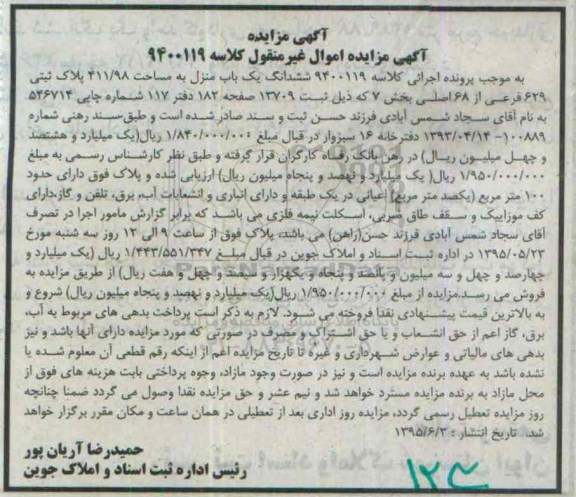 آگهی مزایده
آگهی مزایده اموال غیرمنقول کلاسه ۹۴۰۰۱۱۹
به موجب پرونده اجرائی کلاسه ۹۴۰۰۱۱۹ ششدانگ یک باب منزل به مساحت ۴۱۱/۹۸ پلاک ثبتی
۶۲۹ فرعی از ۶۸ اصلی بخش ۷ که ذیل ثبت ۱۳۷۰۹ صفحه ۱۸۲ دفتر ۱۱۷ شماره چاپی ۵۴۶۷۱۴
به نام آقای سجاد شمس آبادی فرزند حسن ثبت و سند صادر شده است و طبق سند رهنی شماره
۱۰۰۸۸۹- ۱۳۹۳/۰۴/۱۴ دفترخانه ۱۶ سبزوار در قبال مبلغ ۱/۸۴۰/۰۰۰/۰۰۰ ریال(یک میلیارد و هشتصد
و چهل میلیون ریال) در رهن بانک رفاه کارگران قرار گرفته و طبق نظر کارشناس رسمی به مبلغ
۱/۹۵۰/۰۰۰/۰۰۰ ریال( یک میلیارد و نهصد و پنجاه میلیون ریال) ارزیابی شده و پلاک فوق دارای حدود
۱۰۰ متر مربع (یکصد متر مربع) اعیانی در یک طبقه و دارای انباری و انشعابات آب، برق، تلفن و گاز،دارای
کف موزاییک و سقف طاق ضربی، اسکلت نیمه فلزی می باشد که برابر گزارش مامور اجرا در تصرف
آقای سجاد شمس آبادی فرزند حسن(راهن) می باشد، پلاک فوق از ساعت ۹ الی ۱۲ روز سه شنبه مورخ
۱۳۹۵/۰۵/۲۳ در اداره ثبت اسناد و املاک جوین در قبال مبلغ ۱/۴۴۳/۵۵۱/۳۴۷ ریال (یک میلیارد و
چهارصد و چهل و سه میلیون و پانصد و پنجاه و یکهزار و سیصد و چهل و هفت ریال) از طریق مزایده به
فروش می رسد.مزایده از مبلغ ۱/۹۵۰/۰۰۰/۰۰۰ ریال(یک میلیارد و نهصد و پنجاه میلیون ریال) شروع و
به بالاترین قیمت پیشنهادی نقدا فروخته می شود. لازم به ذکر است پرداخت بدهی های مربوط به آب،
برق، گاز اعم از حق انشعاب و یا حق اشتراک و مصرف در صورتی که مورد مزایده دارای آنها باشد و نیز
بدهی های مالیاتی و عوارض شهرداری و غیره تا تاریخ مزایده اعم از اینکه رقم قطعی آن معلوم شده یا
نشده باشد به عهده برنده مزایده است و نیز در صورت وجود مازاد، وجوه پرداختی بابت هزینه های فوق از
محل مازاد به برنده مزایده مسترد خواهد شد و نیم عشر و حق مزایده نقدا وصول می گردد ضمنا چنانچه
روز مزایده تعطیل رسمی گردد، مزایده روز اداری بعد از تعطیلی در همان ساعت و مکان مقرر برگزار خواهد
شد. تاریخ انتشار : ۱۳۹۵/۶/۳
حمیدرضا آریان پور
رئیس اداره ثبت اسناد و املاک جوین